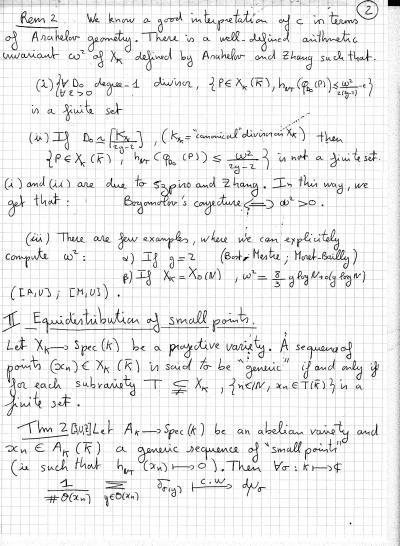 2
Rem 2 We know a good interpretation of c in terms
of Arakelov geometry. There is a well-defined arithmetic
invariant ω² of X_K defined by Arakelov and Zhang such that.
(i) {∀ D₀ degree-1 divisor, {P ∈ X_K(K̄), h_NT(φ_D₀(P)) ≤ ω²/2(g-2) - ε}
∀ε>0
is a finite set
(ii) If D₀ ~ [K_X/2g-2], (K_X = "canonical" divisor on X_K) then
{P ∈ X_K(K̄), h_NT(φ_D₀(P)) ≤ ω²/2g-2} is not a finite set.
(i) and (ii) are due to Szpiro and Zhang. In this way, we
get that: Bogomolov's conjecture ⟺ ω² > 0.
(iii) There are few examples, where we can explicitely
compute ω²: α) If g=2 (Bost, Mestre, Moret-Bailly)
β) If X_K = X₀(N), ω² = 8/3 g log N + o(g log N)
([A,U]; [M,U]).
II Equidistribution of small points.
Let X_K → Spec(K) be a projective variety. A sequence of
points (xn) ∈ X_K(K̄) is said to be "generic" if and only if
for each subvariety T ⊊ X_K, {n∈ℕ, xn ∈ T(K̄)} is a
finite set.
Thm 2 [SUZ] Let A_K → Spec(K) be an abelian variety and
xn ∈ A_K(K̄) a generic sequence of "small points"
(ie such that h_NT(xn) ↦ 0). Then ∀σ: K ↦ ℂ
1/#O(xn) Σ_{y∈O(xn)} δ_σ(y) c.w ↦ dμ_σ